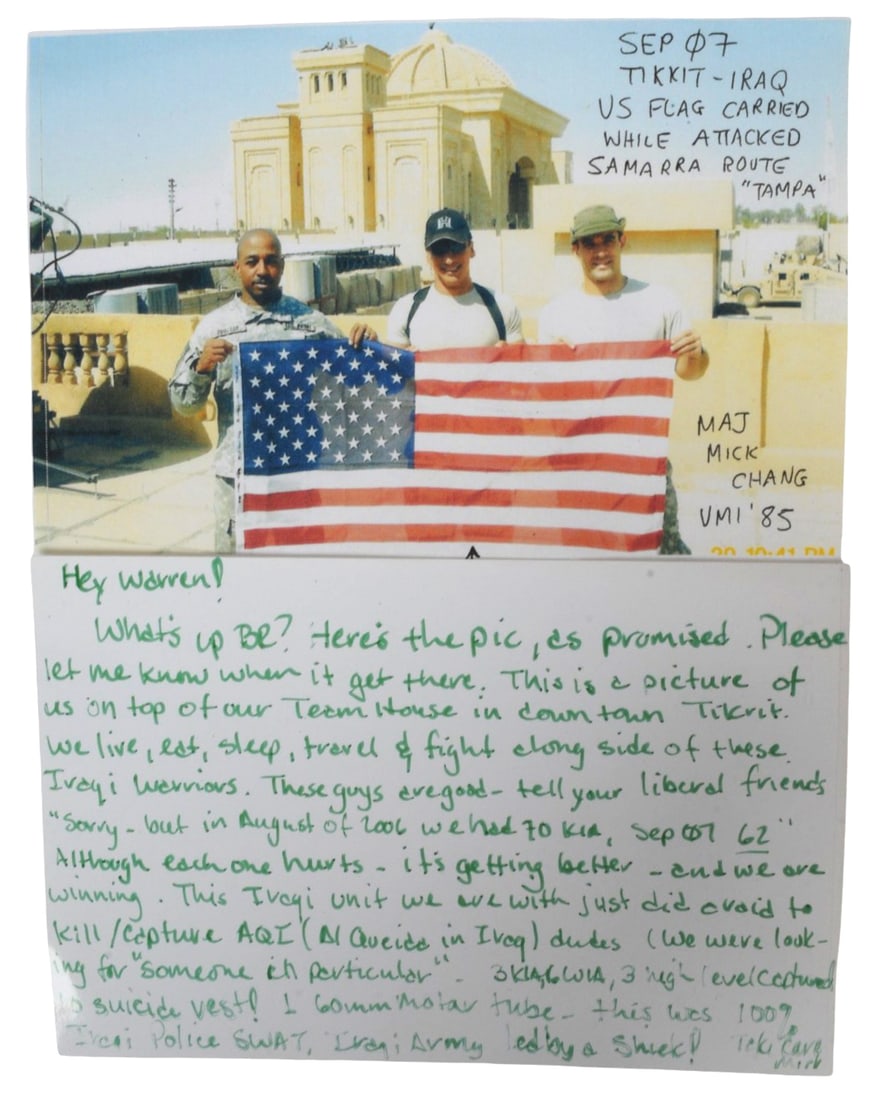 SEP Ø7
TIKKIT-IRAQ
US FLAG CARRIED
WHILE ATTACKED
SAMARRA ROUTE
"TAMPA"
MAJ
MICK
CHANG
VMI '85
10:41 PM
Hey Warren!
What's up BR? Here's the pic, as promised. Please
let me know when it get there. This is a picture of
us on top of our Team House in downtown Tikrit.
We live, eat, sleep, travel & fight along side of these
Iraqi Warriors. These guys are good - tell your liberal friends
"Sorry - but in August of 2006 we had 70 KIA, Sep 07 62"
Although each one hurts - it's getting better - and we are
winning. This Iraqi unit we are with just did a raid to
kill/capture AQI (Al Queida in Iraq) dudes (we were look-
ing for "someone in particular" - 3 KIA, 6 WIA, 3 high level captured
suicide vest! 1 60mm Motar tube - this was 100%
Iraqi Police SWAT, Iraqi Army led by a Shiek! Take Care
Mick